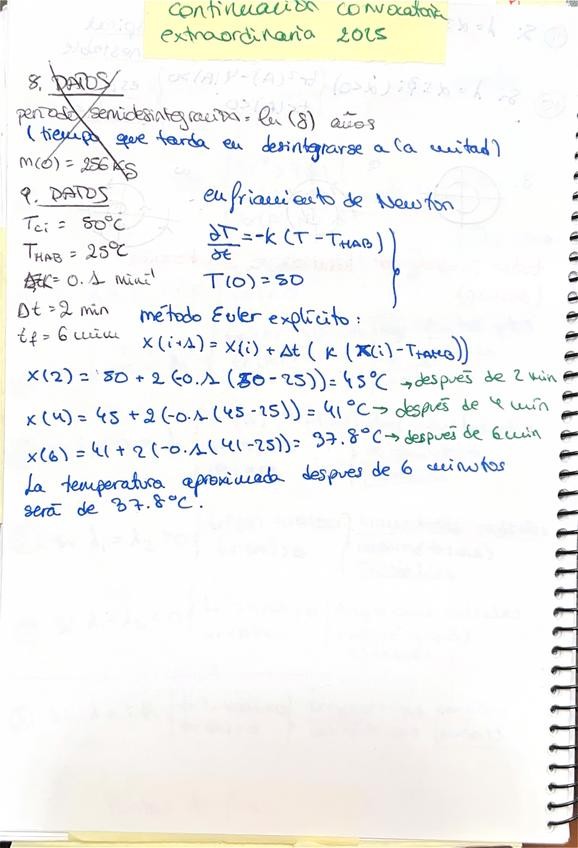 continuación convocatoria
extraordinaria 2025
8. DATOS
periodo semidesintegración = ln (8) años
(tiempo que tarda en desintegrarse a la mitad)
m(0) = 256 KG
9. DATOS
Tci = 50°C
THAB = 25°C
K = 0.1 min⁻¹
Δt = 2 min
tf = 6 min
enfriamiento de Newton
∂T/∂t = -K (T - THAB)
T(0) = 50
método Euler explícito:
X(i+1) = X(i) + Δt ( K (X(i) - THAB))
X(2) = 50 + 2 (-0.1 (50 - 25)) = 45°C → después de 2 min
X(4) = 45 + 2 (-0.1 (45 - 25)) = 41°C → después de 4 min
X(6) = 41 + 2 (-0.1 (41 - 25)) = 37.8°C → después de 6 min
La temperatura aproximada despues de 6 minutos
será de 37.8°C.